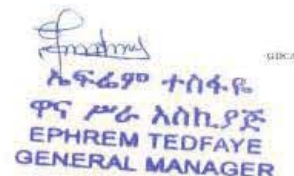 ኤፍሬም ተስፋዬ
ዋና ሥራ አስኪያጅ
EPHREM TEDFAYE
GENERAL MANAGER